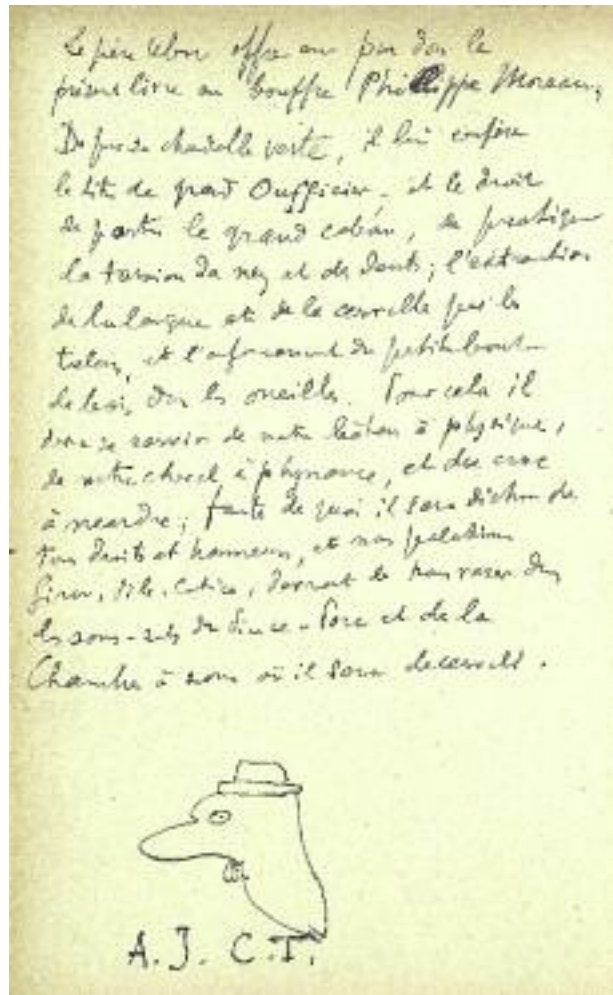 Le père Ubu offre en pur don le
présent livre au bouffre Philippe Moreau,
De par sa chandelle verte, il lui confère
le titre de grand Oufficier - et le droit
de porter le grand cabân, de pratiquer
la torsion du nez et des dents ; l'extraction
de la langue et de la cervelle par les
talons, et l'enfoncement du petit bout de
de bois dans les oneilles. Pour cela il
devra se servir de notre bâton à physique,
de notre cheval à phynance, et du croc
à merdre ; faute de quoi il sera déchu de
tous droits et honneurs, et nos palotins
Giron, Pile, Cotice, devront le
les sous-sols du Pince-Porc et de la
Chambre à sous où il sera décervelé.
A. J. C. T.